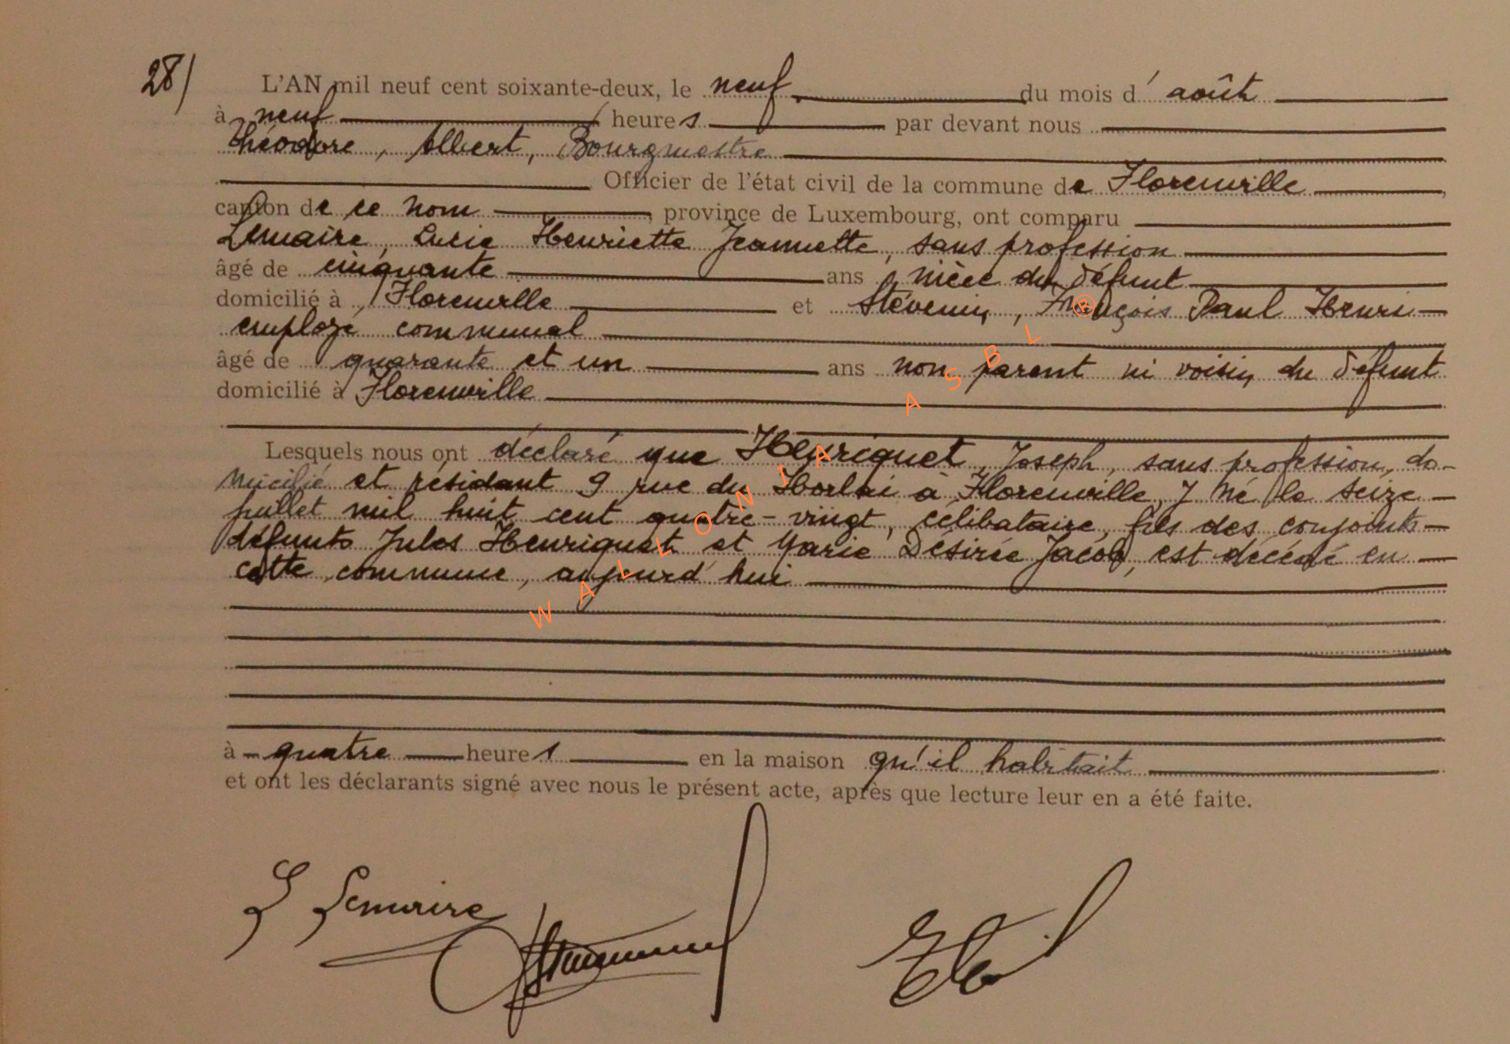 28/ L'AN mil neuf cent soixante-deux, le neuf du mois d' août
à neuf heures par devant nous
Théodore, Albert, Bourgmestre
Officier de l'état civil de la commune de Florenville,
canton de ce nom, province de Luxembourg, ont comparu
Lemaire, Lucie Henriette Jeannette, sans profession
âgé de cinquante ans, nièce du défunt
domicilié à Florenville et Stévenin, François Paul Henri
employé communal
âgé de quarante et un ans non parent ni voisin du défunt
domicilié à Florenville
Lesquels nous ont déclaré que Henriquet, Joseph, sans profession, do-
micilié et résidant 9 rue du à Florenville, y né le seize
juillet mil huit cent quatre-vingt, célibataire, fils des conjoints
défunts Jules Henriquet et Marie Désirée Jacob, est décédé en
cette commune, aujourd'hui
à quatre heures en la maison qu'il habitait
et ont les déclarants signé avec nous le présent acte, après que lecture leur en a été faite.
L Lemaire
WALLONIA ASBL ©